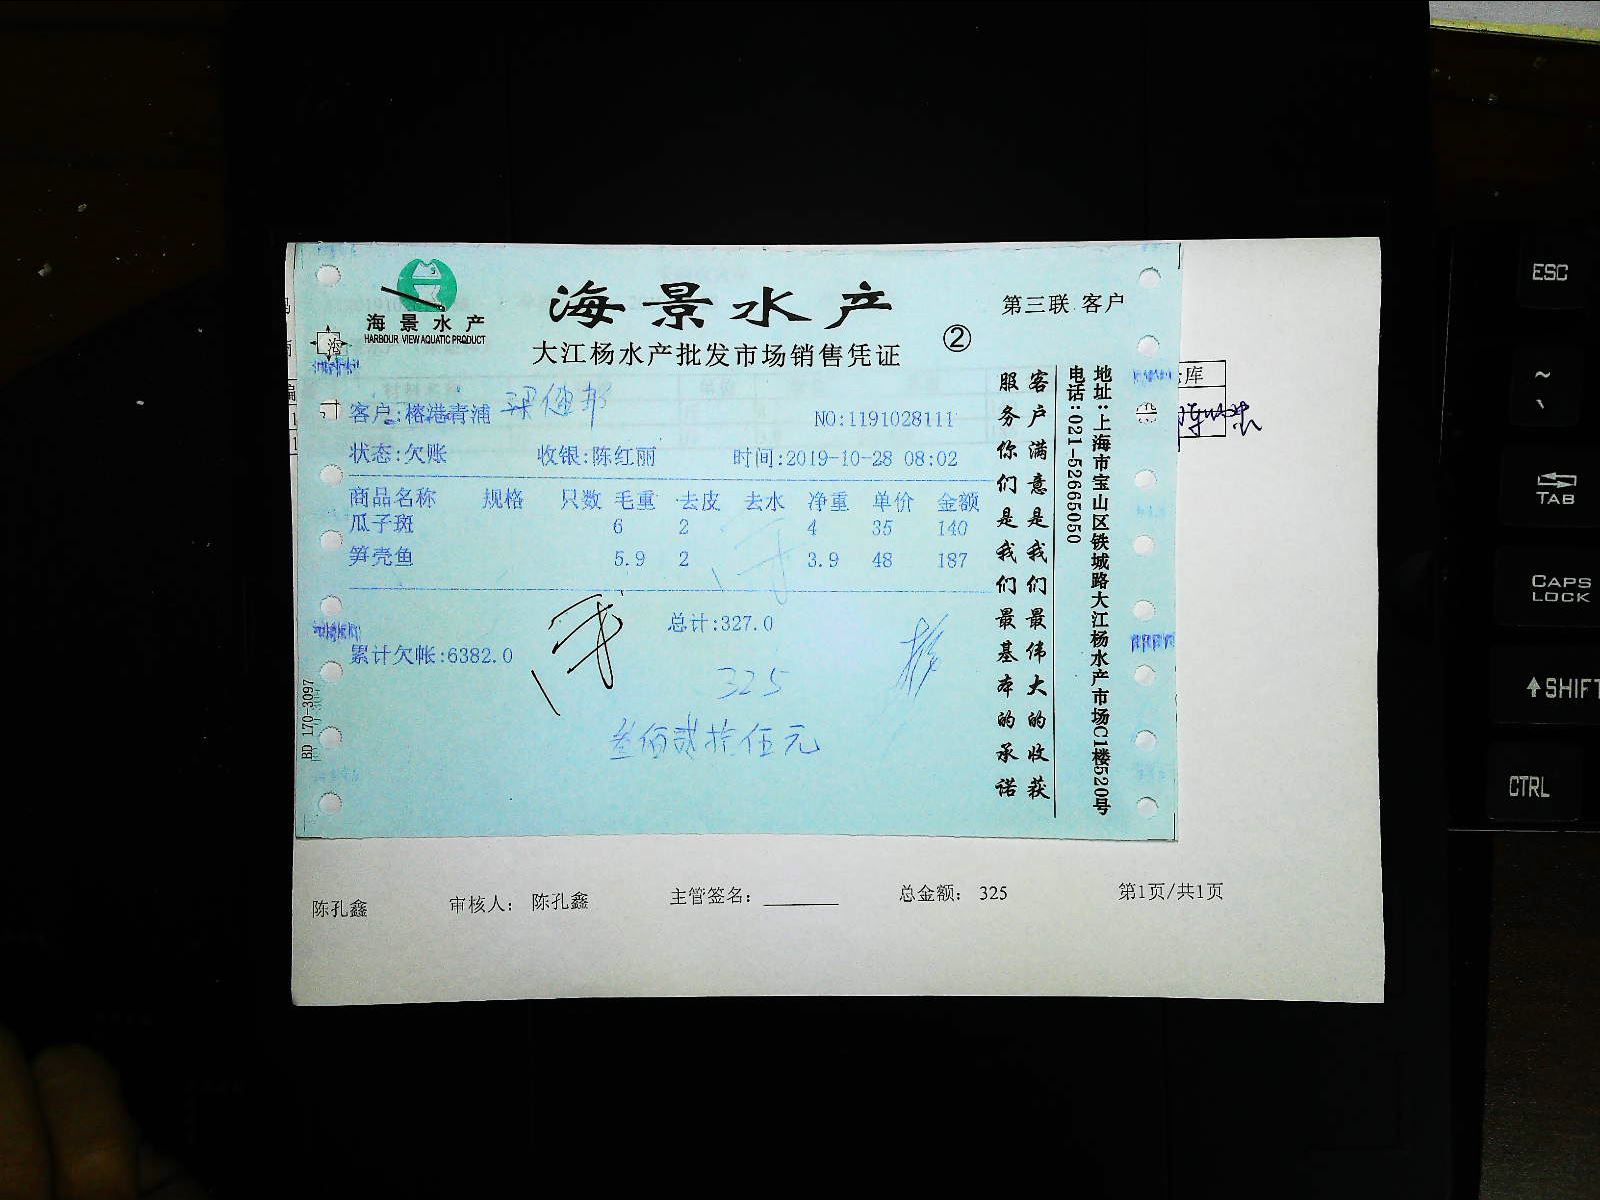 海景水产
HARBOUR VIEW AQUATIC PRODUCT
海景水产
大江杨水产批发市场销售凭证
②
第三联 客户
客户:榕港青浦
NO:1191028111
状态:欠账 收银:陈红丽 时间:2019-10-28 08:02
商品名称 规格 只数 毛重 去皮 去水 净重 单价 金额
瓜子斑 6 2 4 35 140
笋壳鱼 5.9 2 3.9 48 187
总计:327.0
累计欠帐:6382.0
325
叁佰贰拾伍元
客户满意是我们最伟大的收获
服务你们是我们最基本的承诺
地址:上海市宝山区铁城路大江杨水产市场C1楼520号
电话:021-52665050
BD 170-3097
库
陈孔鑫 审核人: 陈孔鑫 主管签名: 总金额: 325 第1页/共1页
ESC
~
TAB
CAPS
LOCK
SHIFT
CTRL